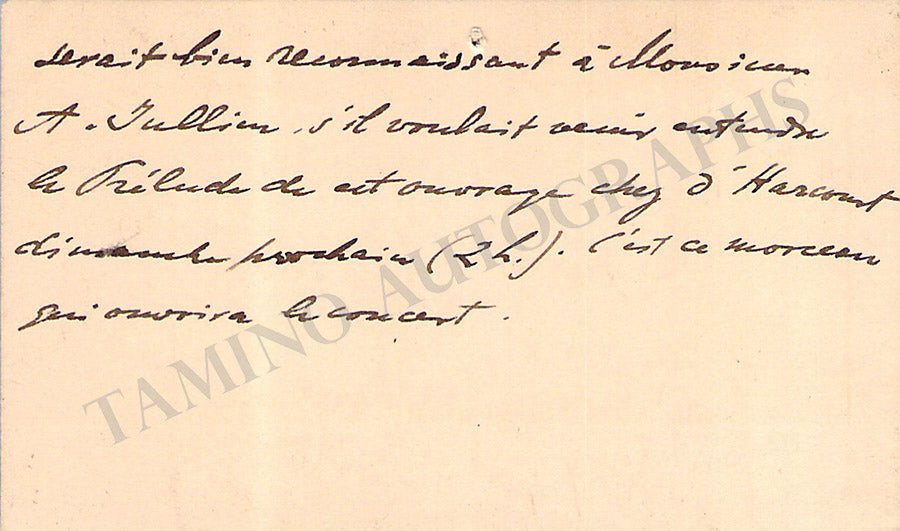 serait bien reconnaissant à Monsieur
A. Jullien, s'il voulait venir entendre
le Prélude de cet ouvrage chez d'Harcourt
dimanche prochain (2 h.). C'est ce morceau
qui ouvrira le concert.
TAMINO AUTOGRAPHS